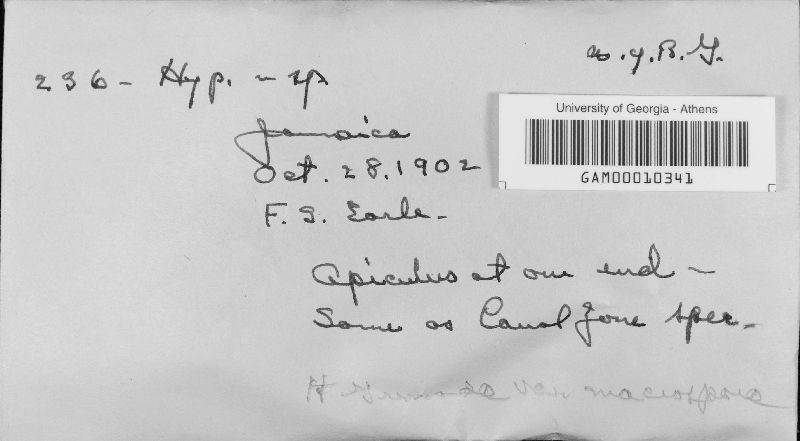 N.Y.B.G.
236 - Hyp. - sp
University of Georgia - Athens
GAM00010341
Jamaica
Oct. 28. 1902
F. S. Earle -
Apiculus at one end -
Same as Canal Zone spec -
H var. macrospora